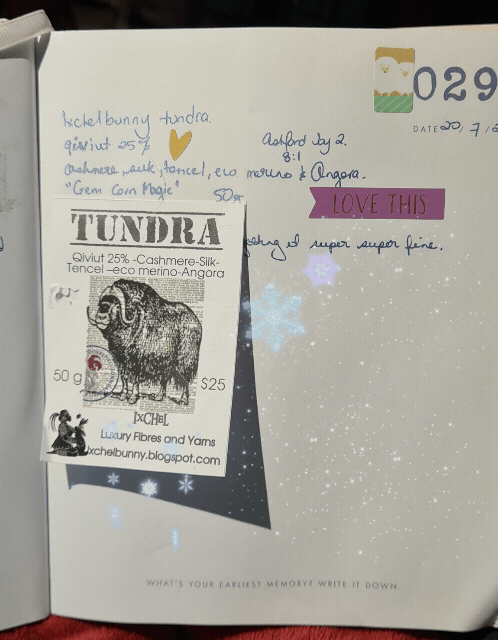 029
DATE 20/7/2
Ixchelbunny tundra.
qiviut 25%
Ashford Joy 2.
8:1
cashmere, silk, tencel, eco merino & Angora.
"Gem Corn Magic"
50gr
LOVE THIS
super super fine.
TUNDRA
Qiviut 25% -Cashmere-Silk-
Tencel -eco merino-Angora
50 g
$25
IxCHeL
Luxury Fibres and Yarns
ixchelbunny.blogspot.com
WHAT'S YOUR EARLIEST MEMORY? WRITE IT DOWN.